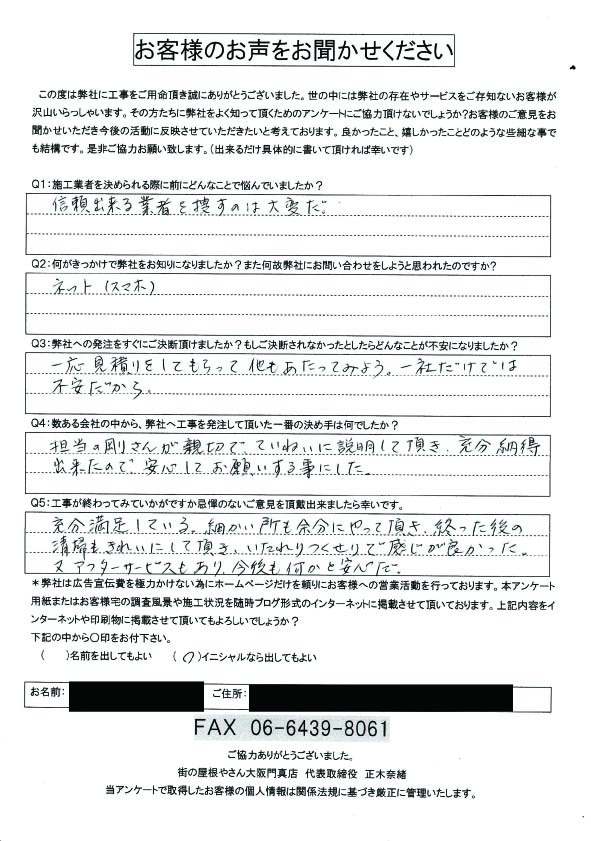 お客様のお声をお聞かせください
この度は弊社に工事をご用命頂き誠にありがとうございました。世の中には弊社の存在やサービスをご存知ないお客様が
沢山いらっしゃいます。その方たちに弊社をよく知って頂くためのアンケートにご協力頂けないでしょうか?お客様のご意見をお
聞かせいただき今後の活動に反映させていただきたいと考えております。良かったこと、嬉しかったことどのような些細な事で
も結構です。是非ご協力お願い致します。(出来るだけ具体的に書いて頂ければ幸いです)
Q1:施工業者を決められる際に前にどんなことで悩んでいましたか?
信頼出来る業者を捜すのは大変だ。
Q2:何がきっかけで弊社をお知りになりましたか?また何故弊社にお問い合わせをしようと思われたのですか?
ネット(スマホ)
Q3:弊社への発注をすぐにご決断頂けましたか?もしご決断されなかったとしたらどんなことが不安になりましたか?
一応見積りをしてもらって他もあたってみよう。一社だけでは
不安だから。
Q4:数ある会社の中から、弊社へ工事を発注して頂いた一番の決め手は何でしたか?
担当の剛さんが親切で、ていねいに説明して頂き、充分納得
出来たので、安心してお願いする事にした。
Q5:工事が終わってみていかがですか忌憚のないご意見を頂戴出来ましたら幸いです。
充分満足している。細かい所も余分にやって頂き、終った後の
清掃もきれいにして頂き、いたれりつくせりで感じが良かった。
又アフターサービスもあり、今後も何かと安心だ。
*弊社は広告宣伝費を極力かけない為にホームページだけを頼りにお客様への営業活動を行っております。本アンケート
用紙またはお客様宅の調査風景や施工状況を随時ブログ形式のインターネットに掲載させて頂いております。上記内容をイ
ンターネットや印刷物に掲載させて頂いてもよろしいでしょうか?
下記の中から〇印をお付下さい。
( )名前を出してもよい (〇)イニシャルなら出してもよい
お名前: ご住所:
FAX 06-6439-8061
ご協力ありがとうございました。
街の屋根やさん大阪門真店 代表取締役 正木奈緒
当アンケートで取得したお客様の個人情報は関係法規に基づき厳正に管理いたします。